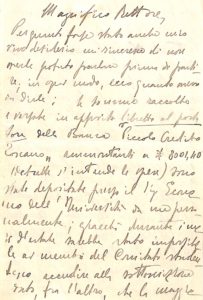 Magnifico Rettore,
Per quanti forse stato anche mio
vivo desiderio mi rincresce di non
averle potuto parlare prima di parti
re, in ogni modo, ecco quanto avevo
da dirle: le somme raccolte
e versate in apposito libretto al porta
tore della Banca Piccolo Credito
Toscano, ammontanti a £ 8001,40
(detratte, s'intende le spese) sono
state depositate presso il Sig. Econo
mo dell'Università da me perso
nalmente; giacché durante i me
si d'estate sarebbe stato impossibi
le ai membri del Comitato studen
tesco accudire alla sottoscrizione
dato fra l'altro, che la maggio